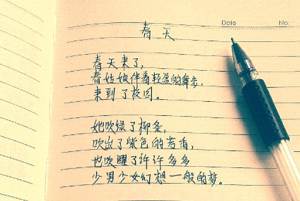 Date
No.
春天
春天来了,
春姑娘伴着轻盈的舞步,
来到了校园。
她吹绿了柳条,
吹出了紫色的苦雨,
也吹醒了许许多多
少男少女幻想一般的梦。